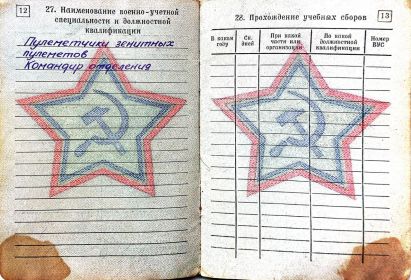 12
27. Наименование военно-учетной
специальности и должностной
квалификации
Пулеметчики зенитных
пулеметов
Командир отделения
13
28. Прохождение учебных сборов
В каком году
Ск. дней
При какой части или организации
По какой должностной квалификации
Номер ВУС